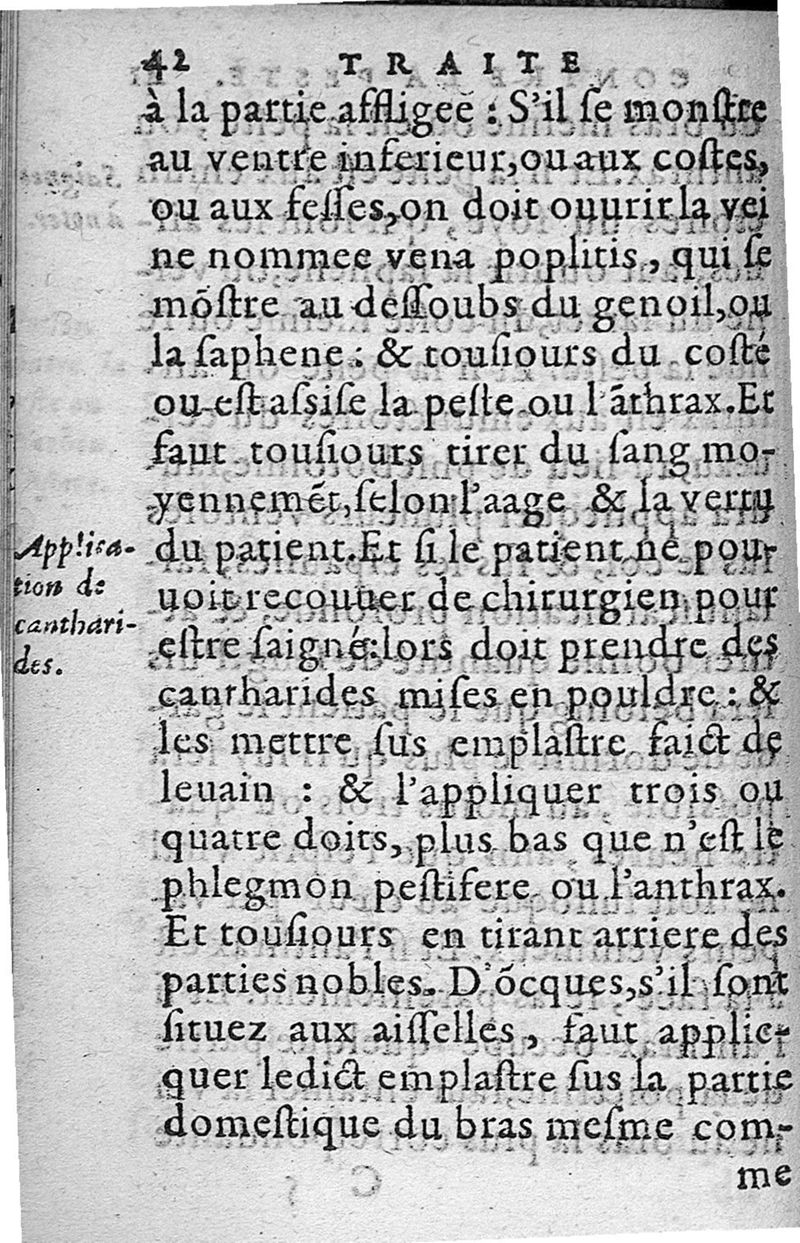 42 TRAITE
à la partie affligee : S'il ſe monſtre
au ventre inferieur, ou aux coſtes,
ou aux feſſes, on doit ouurir la vei
ne nommee vena poplitis, qui ſe
mõſtre au deſſoubs du genoil, ou
la ſaphene : & touſiours du coſté
ou eſt aſsiſe la peſte ou l'ãthrax. Et
faut touſiours tirer du ſang mo-
yennemẽt, ſelon l'aage & la vertu
Applica-
tion de
canthari-
des.
du patient. Et ſi le patient ne pou-
uoit recouurer de chirurgien pour
eſtre ſaigné: lors doit prendre des
cantharides miſes en pouldre : &
les mettre ſus emplaſtre faict de
leuain : & l'appliquer trois ou
quatre doits, plus bas que n'eſt le
phlegmon peſtifere ou l'anthrax.
Et touſiours en tirant arriere des
parties nobles. D'õcques, s'il ſont
ſituez aux aiſſelles, faut applic-
quer ledict emplaſtre ſus la partie
domeſtique du bras meſme com-
me